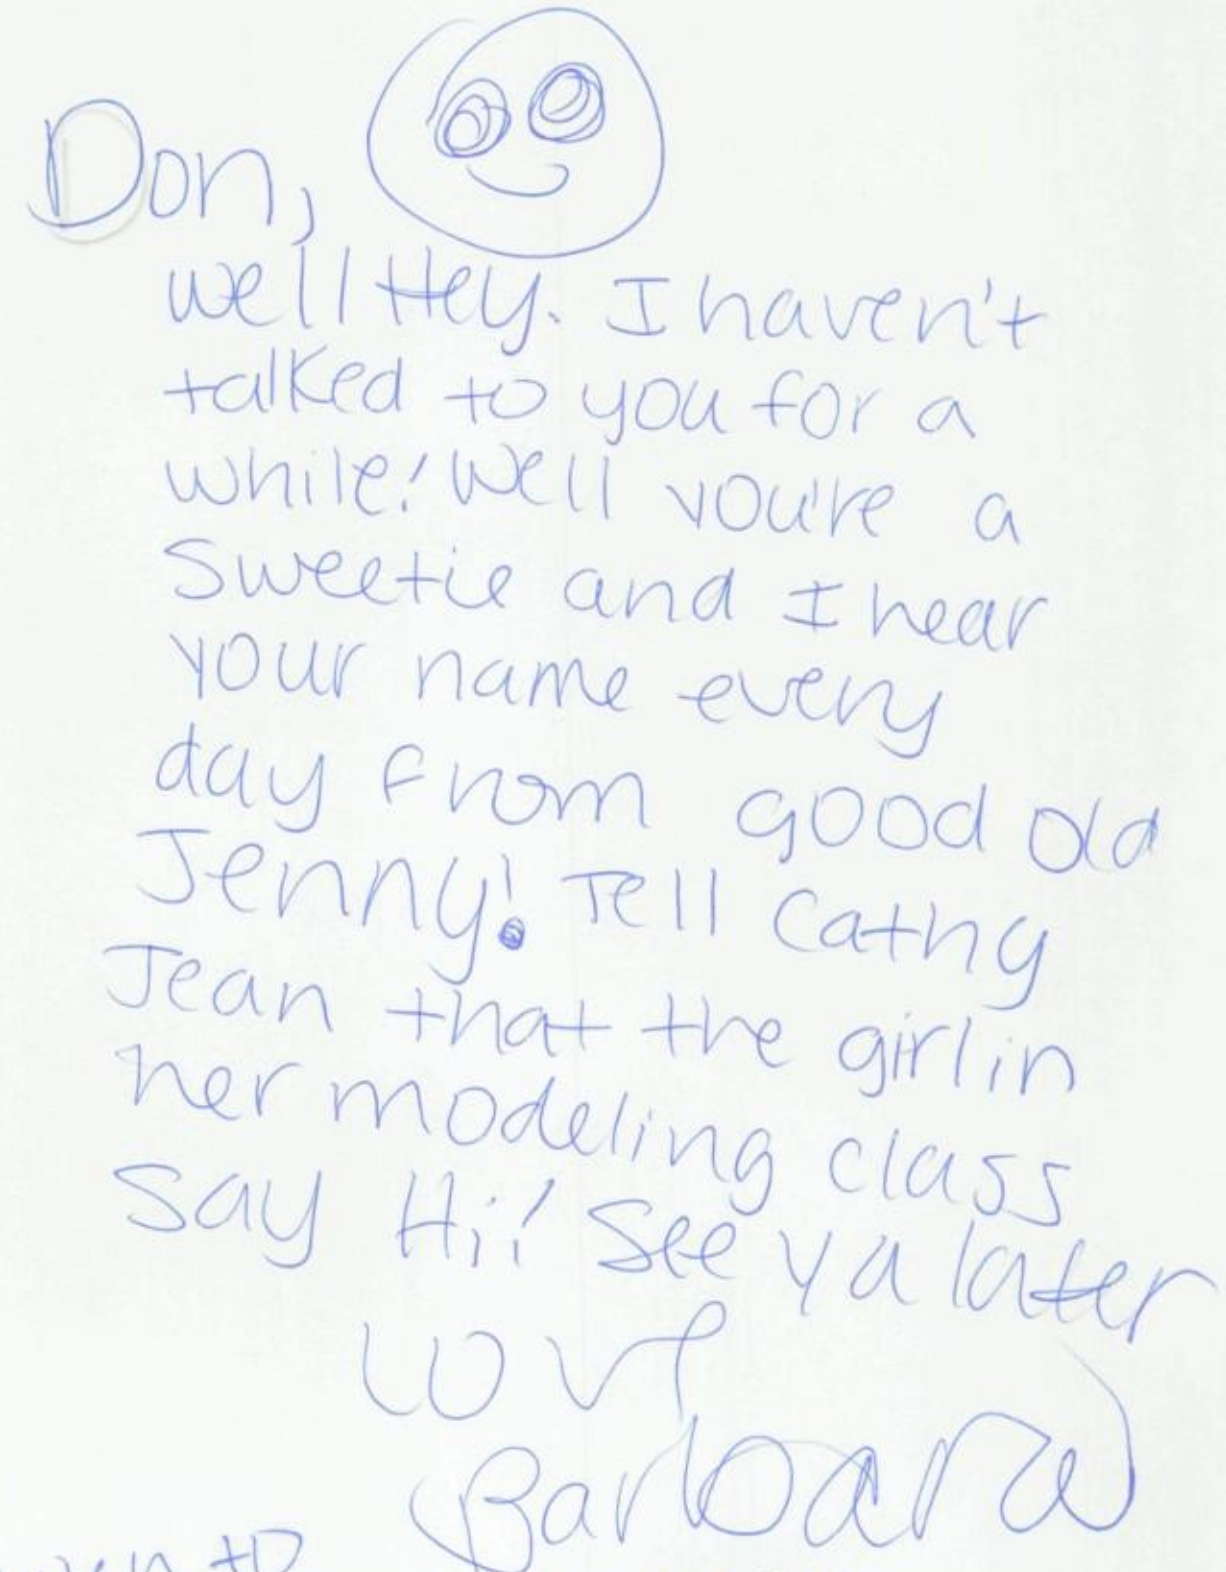 Don,
well Hey. I haven't
talked to you for a
while! Well you're a
Sweetie and I hear
your name every
day from good old
Jenny! Tell Cathy
Jean that the girl in
her modeling class
Say Hi! See ya later
Love
Barbara
to